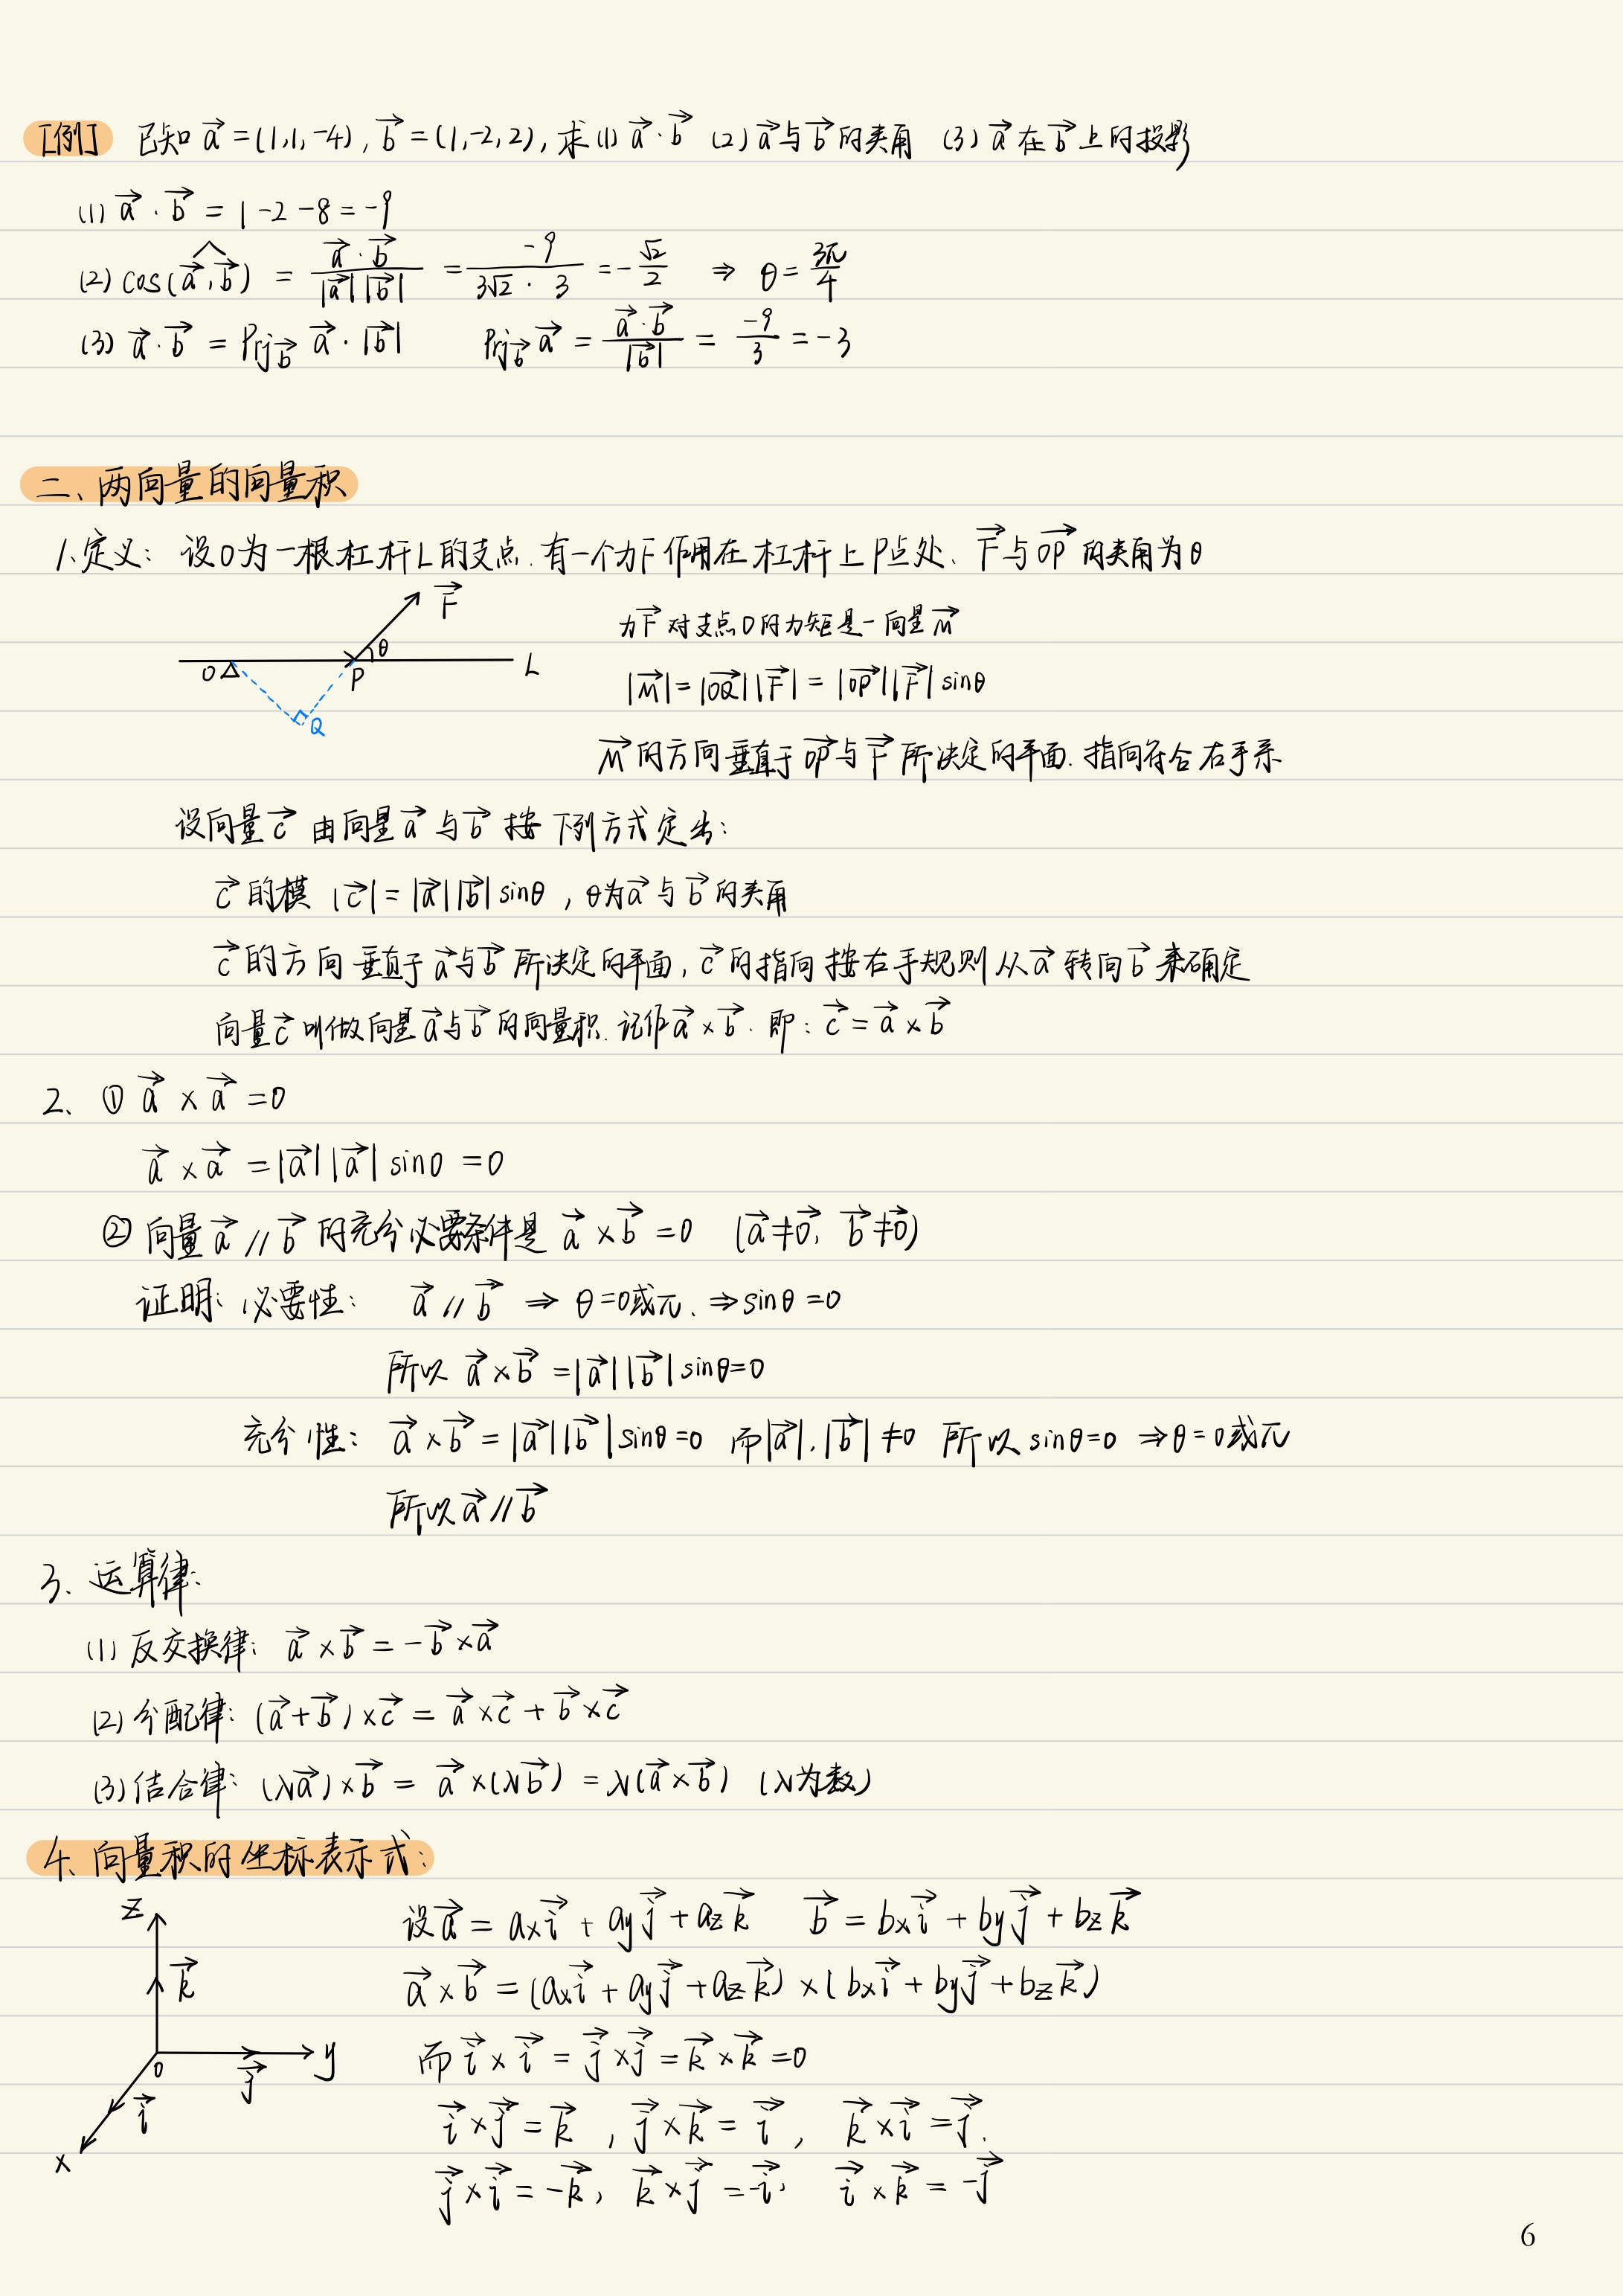 [例] 已知 $\vec{a}=(1,1,-4)$, $\vec{b}=(1,-2,2)$, 求(1) $\vec{a}\cdot\vec{b}$ (2) $\vec{a}$与$\vec{b}$的夹角 (3) $\vec{a}$在$\vec{b}$上的投影
(1) $\vec{a}\cdot\vec{b}=1-2-8=-9$
(2) $\cos(\widehat{\vec{a},\vec{b}})=\frac{\vec{a}\cdot\vec{b}}{|\vec{a}||\vec{b}|}=\frac{-9}{3\sqrt{2}\cdot 3}=-\frac{\sqrt{2}}{2}$ ⇒ $\theta=\frac{3\pi}{4}$
(3) $\vec{a}\cdot\vec{b}=Prj_{\vec{b}}\vec{a}\cdot|\vec{b}|$ $Prj_{\vec{b}}\vec{a}=\frac{\vec{a}\cdot\vec{b}}{|\vec{b}|}=\frac{-9}{3}=-3$
二、两向量的向量积
1、定义: 设O为一根杠杆L的支点. 有一个力F作用在杠杆上P点处、$\vec{F}$与$\vec{OP}$的夹角为θ
$\vec{F}$
θ
O
P
L
Q
力$\vec{F}$对支点O的力矩是一向量$\vec{M}$
$|\vec{M}|=|\vec{OQ}||\vec{F}|=|\vec{OP}||\vec{F}|\sin\theta$
$\vec{M}$的方向垂直于$\vec{OP}$与$\vec{F}$所决定的平面. 指向符合右手系
设向量$\vec{c}$由向量$\vec{a}$与$\vec{b}$按下列方式定出:
$\vec{c}$的模 $|\vec{c}|=|\vec{a}||\vec{b}|\sin\theta$, θ为$\vec{a}$与$\vec{b}$的夹角
$\vec{c}$的方向垂直于$\vec{a}$与$\vec{b}$所决定的平面, $\vec{c}$的指向按右手规则从$\vec{a}$转向$\vec{b}$来确定
向量$\vec{c}$叫做向量$\vec{a}$与$\vec{b}$的向量积. 记作$\vec{a}\times\vec{b}$. 即: $\vec{c}=\vec{a}\times\vec{b}$
2、① $\vec{a}\times\vec{a}=0$
$\vec{a}\times\vec{a}=|\vec{a}||\vec{a}|\sin 0=0$
② 向量$\vec{a}//\vec{b}$的充分必要条件是 $\vec{a}\times\vec{b}=0$ ($\vec{a}\neq\vec{0}$, $\vec{b}\neq\vec{0}$)
证明: 必要性: $\vec{a}//\vec{b}$ ⇒ θ=0或π. ⇒ sinθ=0
所以 $\vec{a}\times\vec{b}=|\vec{a}||\vec{b}|\sin\theta=0$
充分性: $\vec{a}\times\vec{b}=|\vec{a}||\vec{b}|\sin\theta=0$ 而$|\vec{a}|,|\vec{b}|\neq 0$ 所以 sinθ=0 ⇒θ=0或π
所以$\vec{a}//\vec{b}$
3、运算律:
(1) 反交换律: $\vec{a}\times\vec{b}=-\vec{b}\times\vec{a}$
(2) 分配律: $(\vec{a}+\vec{b})\times\vec{c}=\vec{a}\times\vec{c}+\vec{b}\times\vec{c}$
(3) 结合律: $(\lambda\vec{a})\times\vec{b}=\vec{a}\times(\lambda\vec{b})=\lambda(\vec{a}\times\vec{b})$ (λ为数)
4、向量积的坐标表示式:
z
$\vec{k}$
0
y
$\vec{j}$
$\vec{i}$
x
设$\vec{a}=a_x\vec{i}+a_y\vec{j}+a_z\vec{k}$ $\vec{b}=b_x\vec{i}+b_y\vec{j}+b_z\vec{k}$
$\vec{a}\times\vec{b}=(a_x\vec{i}+a_y\vec{j}+a_z\vec{k})\times(b_x\vec{i}+b_y\vec{j}+b_z\vec{k})$
而$\vec{i}\times\vec{i}=\vec{j}\times\vec{j}=\vec{k}\times\vec{k}=0$
$\vec{i}\times\vec{j}=\vec{k}$, $\vec{j}\times\vec{k}=\vec{i}$, $\vec{k}\times\vec{i}=\vec{j}$.
$\vec{j}\times\vec{i}=-\vec{k}$, $\vec{k}\times\vec{j}=-\vec{i}$, $\vec{i}\times\vec{k}=-\vec{j}$
6